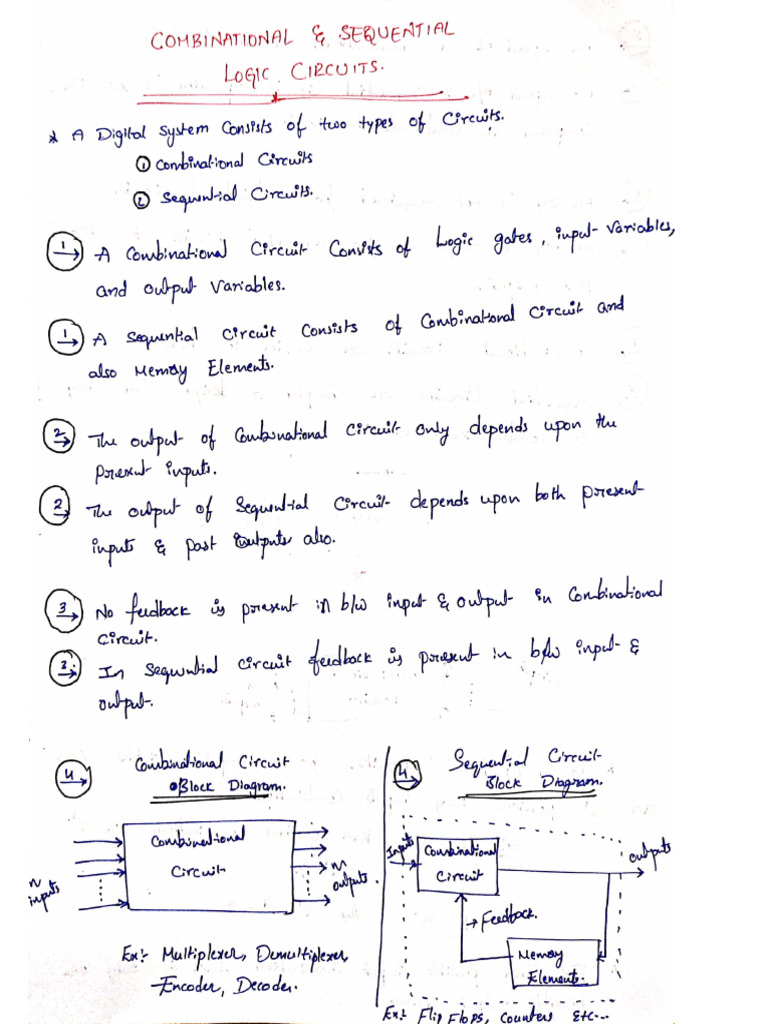 COMBINATIONAL & SEQUENTIAL
LOGIC CIRCUITS.
* A Digital System Consists of two types of Circuits.
① Combinational Circuits
② Sequential Circuits.
1 A Combinational Circuit Consists of Logic gates, input Variables,
and output Variables.
1 A Sequential Circuit Consists of Combinational Circuit and
also Memory Elements.
2 The output of Combinational Circuit only depends upon the
present inputs.
2 The output of Sequential Circuit depends upon both present
inputs & past outputs also.
3 No feedback is present in b/w input & output in Combinational
Circuit.
3. In Sequential Circuit feedback is present in b/w input &
output.
4 Combinational Circuit
Block Diagram.
n
inputs
Combinational
Circuit
m
outputs
Ex:- Multiplexer, Demultiplexer
Encoder, Decoder.
4 Sequential Circuit
Block Diagram.
Inputs
Combinational
Circuit
outputs
→ Feedback.
Memory
Elements.
Ex:- Flip Flops, Counters Etc...